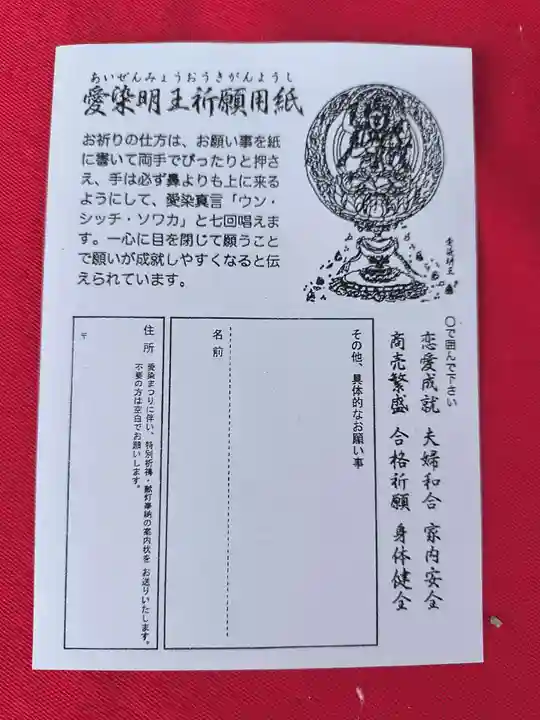 あいぜんみょうおうきがんようし
愛染明王祈願用紙
お祈りの仕方は、お願い事を紙
に書いて両手でぴったりと押さ
え、手は必ず鼻よりも上に来る
ようにして、愛染真言「ウン・
シッチ・ソワカ」と七回唱えま
す。一心に目を閉じて願うこと
で願いが成就しやすくなると伝
えられています。
愛染明王
〇で囲んで下さい
恋愛成就 夫婦和合 家内安全
商売繁盛 合格祈願 身体健全
その他、具体的なお願い事
名前
住所
愛染まつりに伴い、特別祈祷・献灯奉納の案内状を お送りいたします。
不要の方は空白でお願いします。
〒